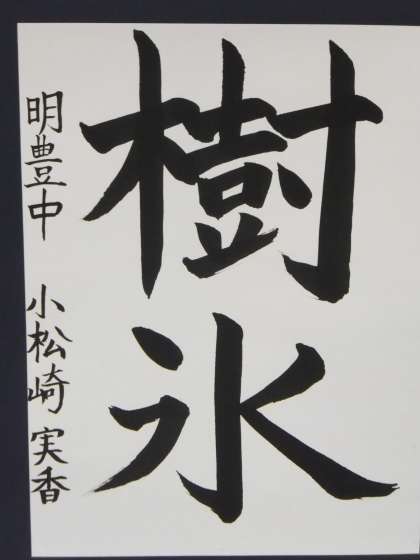 樹氷
明豊中 小松崎実香